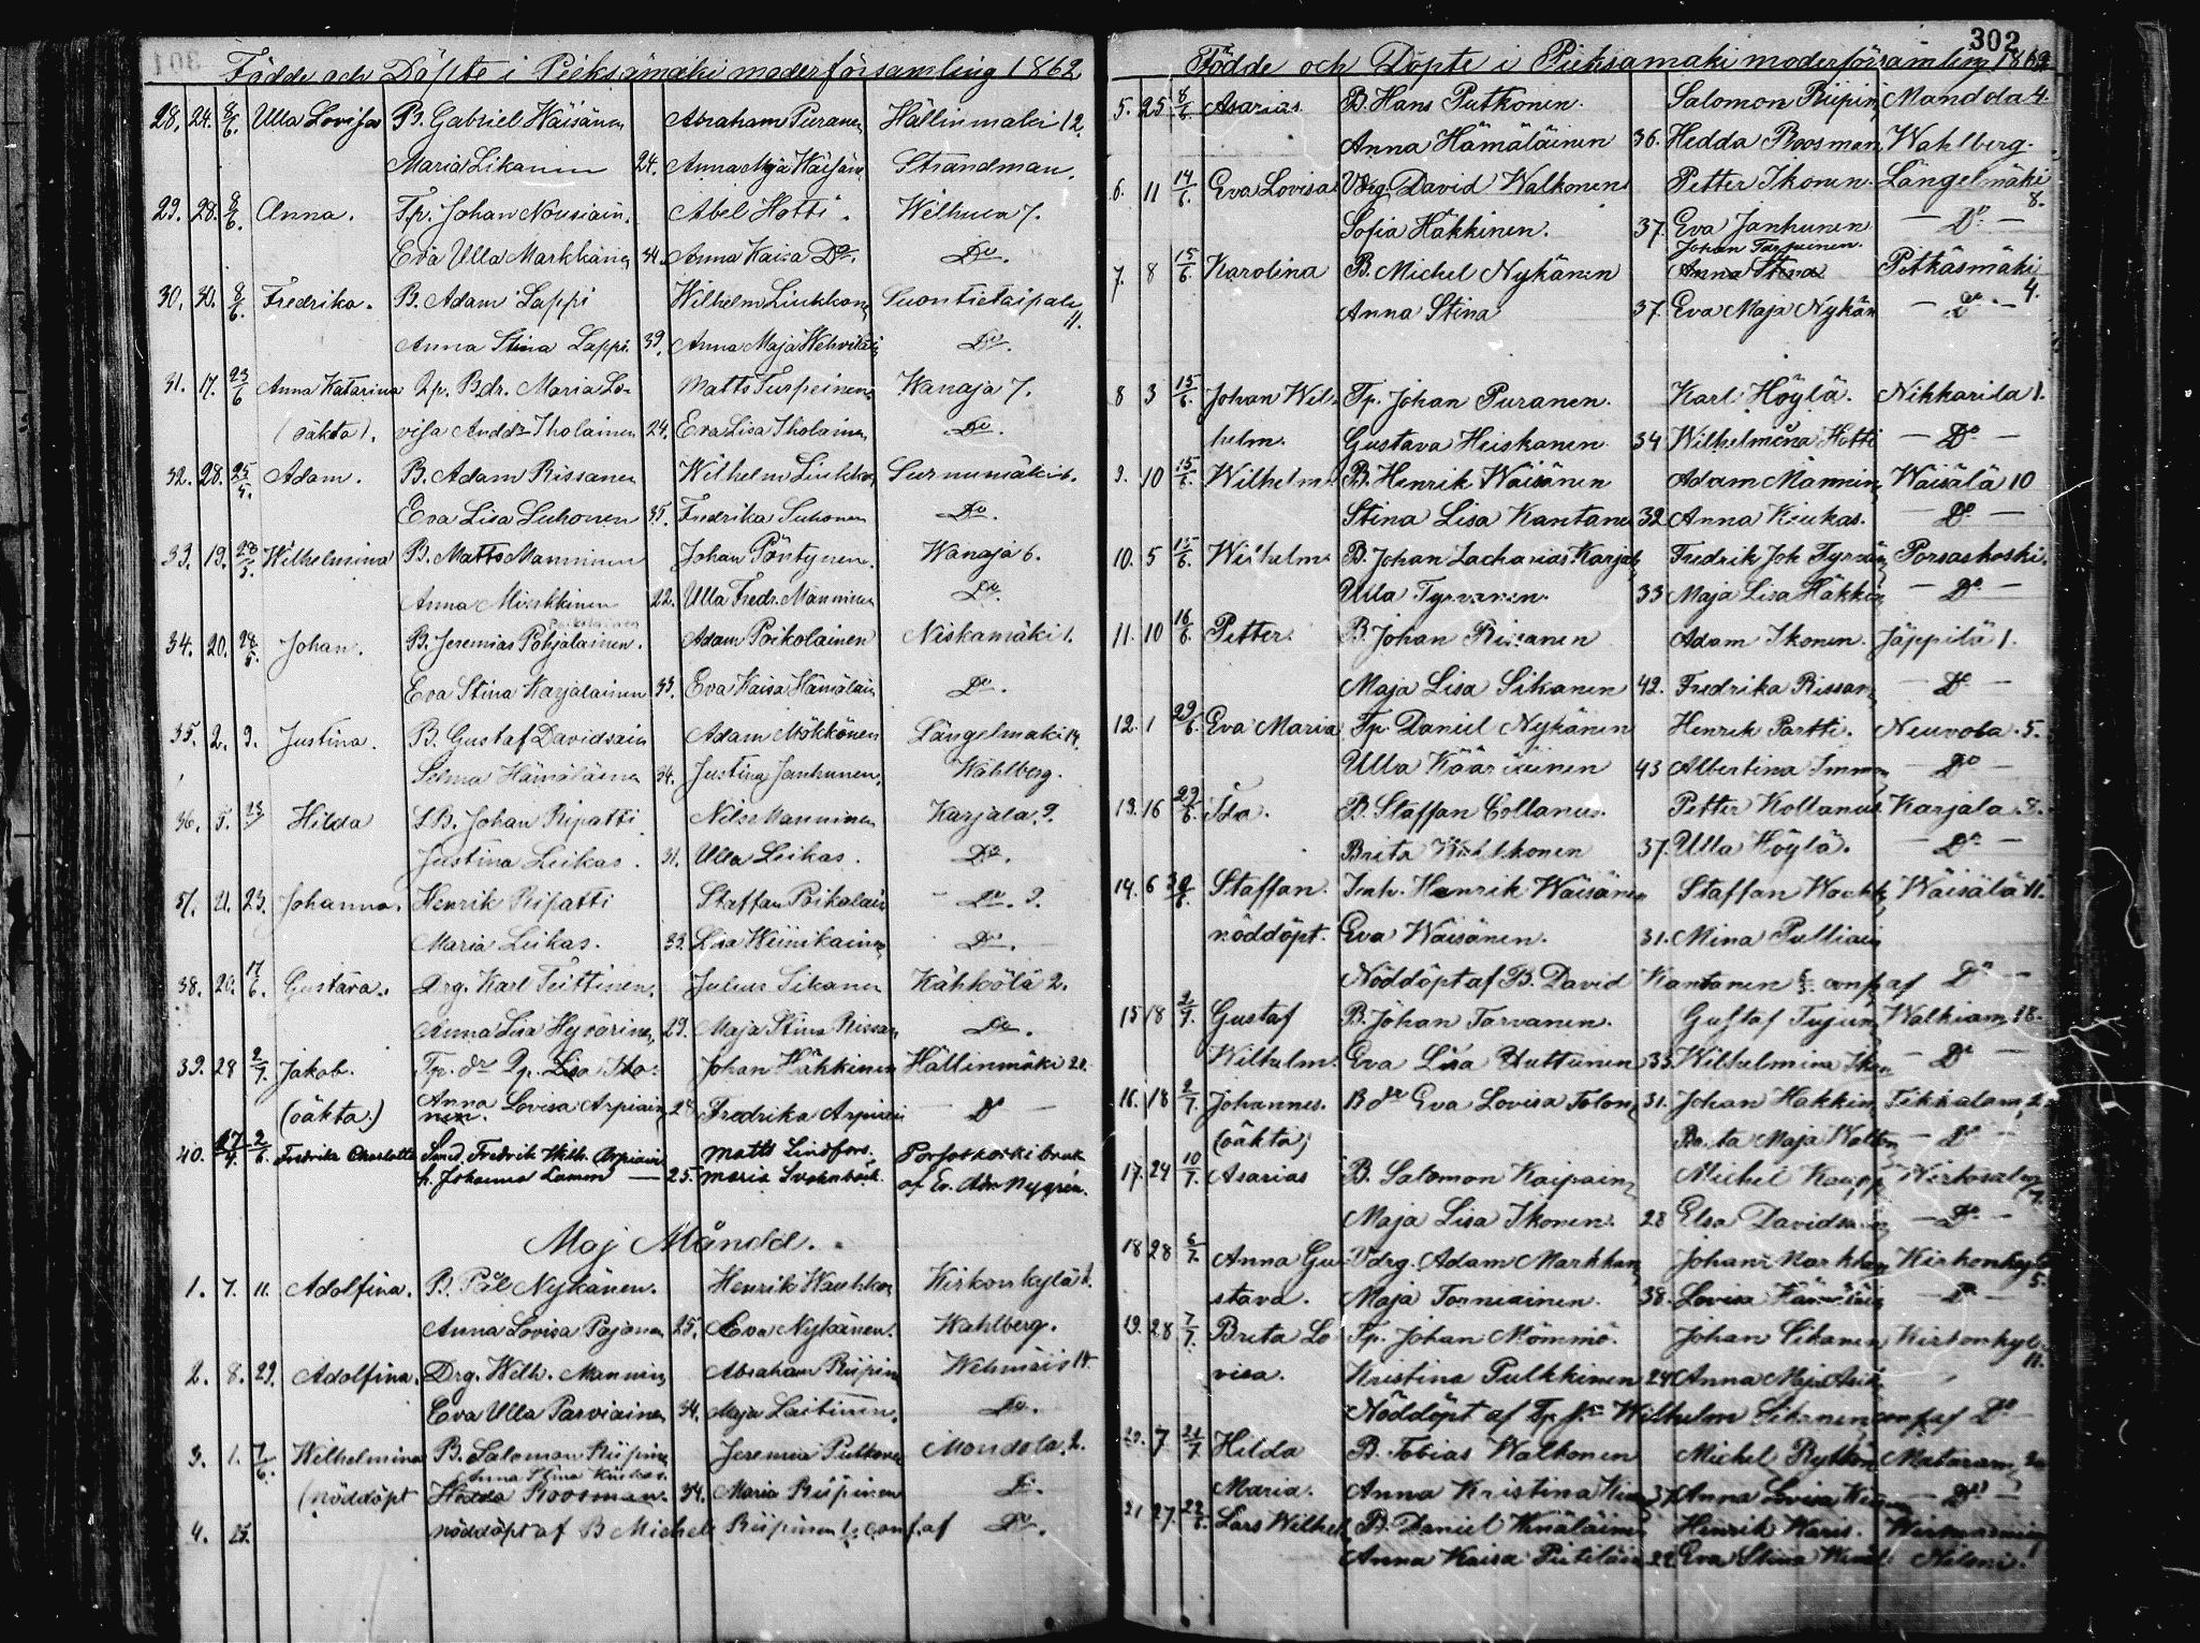 Födde och Döpte i Pieksämäki moderförsamling 1862
28. 24. 8/6. Ulla Lovisa B. Gabriel Wäisänen Abraham Puranen Hällinmäki 12.
Maria Likanin 24. Anna Maja Wäisän Strandman.
29. 28. 8/6. Anna. Tp. Johan Nousiain. Abel Hotti. Wilhula 7.
Eva Ulla Markkanen 34. Anna Kaisa Do. Do.
30. 30. 8/6. Fredrika. B. Adam Lappi Wilhelm Liukkonen Suontietaipale 11.
Anna Stina Lappi 39. Anna Maja Wehviläin Do.
31. 17. 23/6 Anna Katarina Bdr. Maria Lo- Matts Turpeinen Wanaja 7.
(oäkta). visa Tholainen 24. Eva Lisa Tholainen Do.
32. 28. 25/5. Adam. B. Adam Rissanen Wilhelm Liukkon Surnumäki 6.
Eva Lisa Suhonen 35. Fredrika Suhonen Do.
33. 19. 28/5. Wilhelmina B. Matts Manninen Johan Pöntynen. Wanaja 6.
Anna Minkkinen 22. Ulla Fredr. Manninen Do.
Poikolainen
34. 20. 28/5. Johan. B. Jeremias Pohjalainen. Adam Poikolainen Niskamäki 1.
Eva Stina Karjalainen 33. Eva Kaisa Hämäläin Do.
35. 2. 9. Justina. B. Gustaf Davidsain Adam Mökkönen Längelmäki 14.
Selma Hämäläinen 34. Justina Janhunen. Wahlberg.
36. 5. Hilda B. Johan Ripatti Nils Manninen Karjala 9.
Justina Leikas. 31. Ulla Leikas. Do.
21. 23. Johanna. Henrik Ripatti Staffan Poikolain Do. 9.
Maria Leikas. 33. Lisa Weinikainen Do.
38. 20. 17/6. Gustava. Drg. Karl Teittinen. Julius Sikanen Kähkölä 2.
Anna Lisa Hyvärinen 29. Maja Stina Rissan Do.
39. 28 2/7. Jakob. Tp. dr Johan Häkkinen Hällinmäki 20.
(oäkta.) Anna Lovisa Arpiain 24 Fredrika Arpiain Do
40. 27/4. 2/6. Fredrika Charlotta Smed. Fredrik Wilh. Arpiain Matts Lindfors. Porsaskoski bruk
h. Johanna Lamm — 25. Maria Svahnbäck. af Nygrén.
Maj Månad.
1. 7. 11. Adolfina. B. Pål Nykänen. Henrik Wauhkon Kirkonkylä 1.
Anna Lovisa Pajanen 25. Eva Nykänen. Wahlberg.
2. 8. 29. Adolfina. Drg. Welh. Mannin Abraham Riipin Wehmais 14.
Eva Ulla Parviainen 34. Maja Laitinen. Do.
3. 1. 7/6. Wilhelmina B. Salomon Riipin Jeremia Putkonen Mandola 2.
Anna Stina Kiukas.
(nöddöpt Hedda Roosman. 34. Maria Riipinen D:
4. 25. nöddöpt af B Michel Riipinen conf. af Do.
302
Födde och Döpte i Pieksamaki moderförsamling 1862
5. 25 8/6 Asarias. B. Hans Putkonen. Salomon Riipin Mandola 4.
Anna Hämäläinen 36. Hedda Roosman Wahlberg.
6. 11 14/6. Eva Lovisa Vdrg. David Walkonen Petter Ikonen. Längelmäki 8.
Sofia Häkkinen. 37. Eva Janhunen — Do —
Johan Tarpainen.
7. 8 15/6. Karolina B. Michel Nykänen Anna Stina Pitkäsmäki 4.
Anna Stina 37. Eva Maja Nykän — Do —
8 3 15/6. Johan Wil- Tp. Johan Puranen. Karl Höylä. Nikkarila 1.
helm. Gustava Heiskanen 34 Wilhelmina Hotti — Do —
9. 10 15/6. Wilhelm. B. Henrik Wäisänen Adam Männin Wäisälä 10
Stina Lisa Kantanen 32 Anna Kiukas. — Do —
10. 5 15/6. Wilhelm. B. Johan Zacharias Karjal Fredrik Joh Tyrvän Porsaskoski.
Ulla Tyrvanen. 33 Maja Lisa Häkkin — Do —
11. 10 16/6. Petter. B. Johan Rissanen Adam Ikonen. Jäppilä 1.
Maja Lisa Sikanen 42. Fredrika Rissan — Do —
12. 1 29/6. Eva Maria Tp. Daniel Nykänen Henrik Partti. Neuvola. 5.
Ulla Kääriäinen 43 Albertina Immon — Do —
13. 16 29/6. Ida. B. Staffan Collanus. Petter Kollanus Karjala 8.
Brita 37. Ulla Höylä. — Do —
14. 6 Staffan. Inh. Henrik Wäisänen Staffan Wäisälä 11.
nöddöpt. Eva Wäisänen. 31. Mina Pulliain
Nöddöpt af B. David Kantanen conf af Do —
15 18 2/7. Gustaf B. Johan Tarvanen. Gustaf 18.
Wilhelm. Eva Lisa Huttunen 33. Wilhelmina Ikon — Do —
16. 18 2/7. Johannes. Bdr Eva Lovisa Tolon 31. Johan Hakkin Tikkalam 2
(oäkta) Brita Maja — Do —
17. 24 10/7. Asarias B. Salomon Kaipain Michel Kaupp
Maja Lisa Ikonen. 28 Elsa Davidsain — Do —
18 28 6/7. Anna Gu- Vdrg. Adam Markkan Johan Markkan Kirkonkylä 5.
stava. Maja Torniainen. 38. Lovisa — Do —
19. 28 7/7. Brita Lo Tp. Johan Mömmö. Johan Sikanen Kirkonkyl. 11.
visa. Kristina Pulkkinen 24 Anna Maja
Nöddöpt af Tp Wilhelm Sikanen conf. af Do —
20. 7 Hilda B. Tobias Walkonen Michel Rytkön
Maria. Anna Kristina 37 Anna Lovisa — Do —
21 27 Lars Wilhel B. Daniel Henrik Karis.
Anna Kaisa Eva Stina